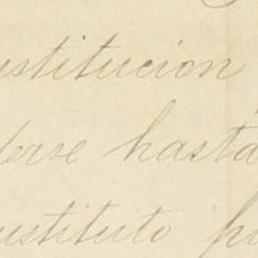 ustitucion
derse hasta
ustituto